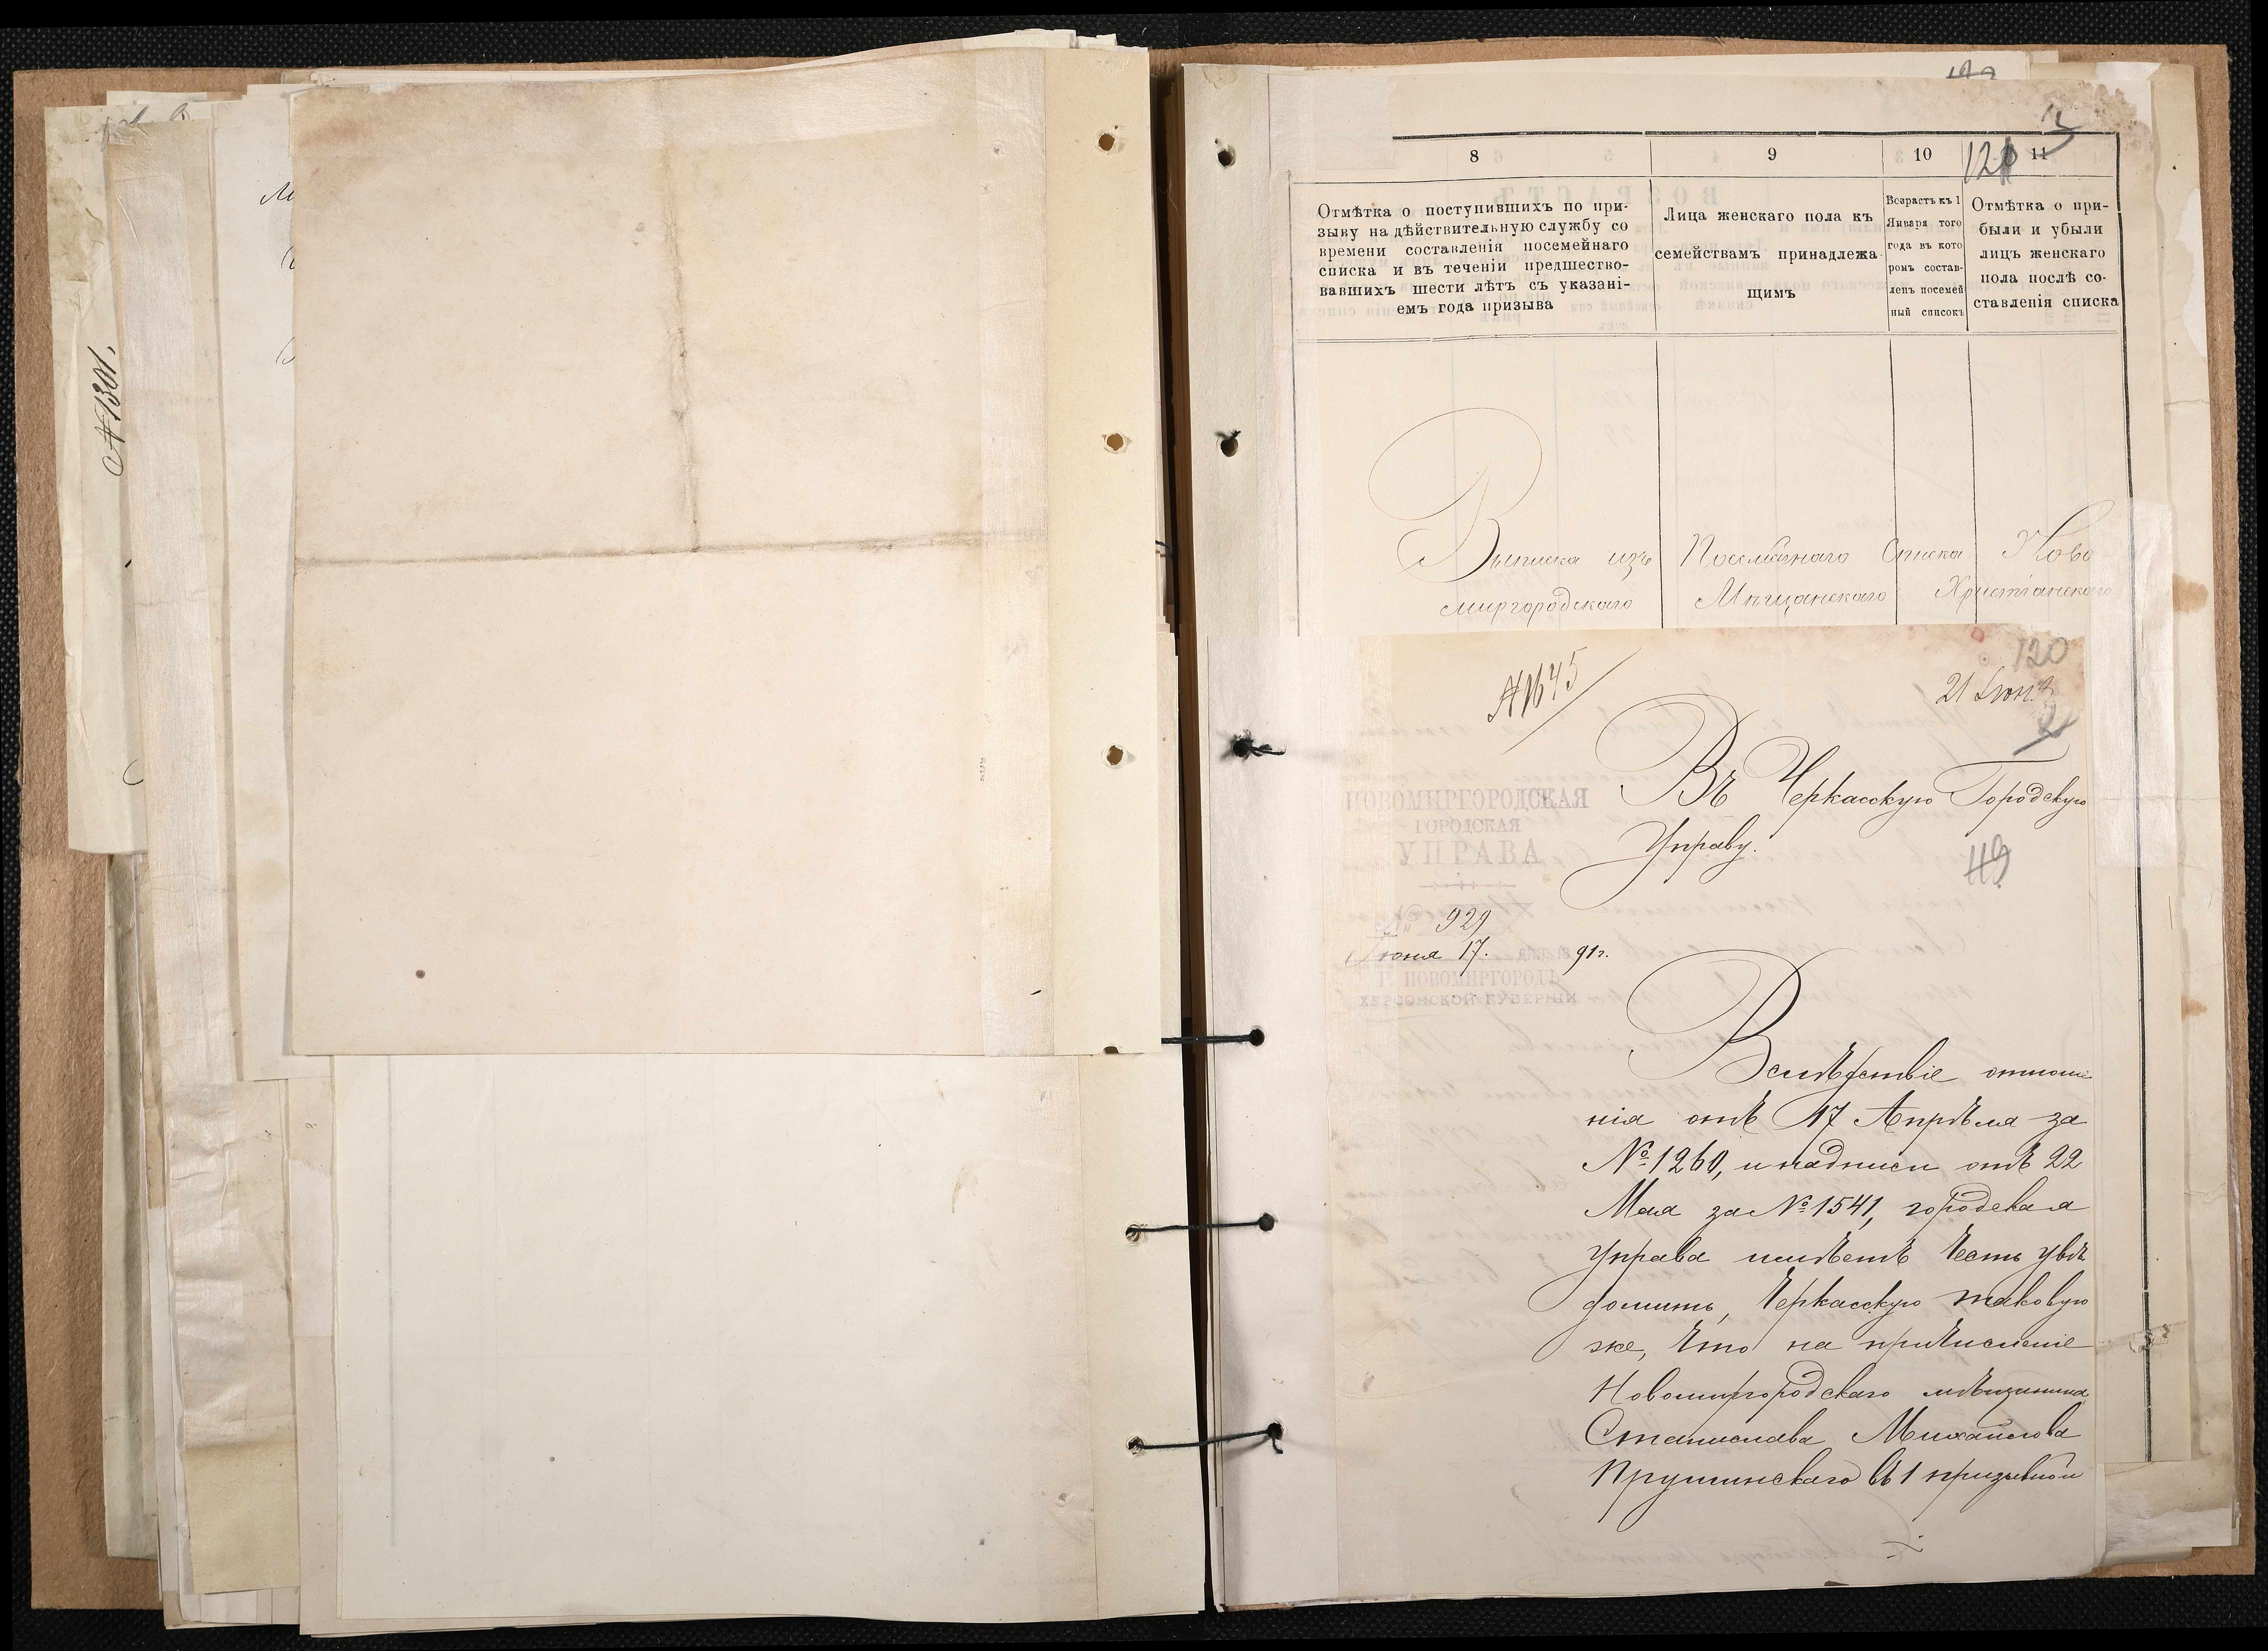 № 1301.
3
121
8 9 10 11
Отмѣтка о поступившихъ по при-
зыву на дѣйствительную службу со
времени составленія посемейнаго
списка и въ теченіи предшество-
вавшихъ шести лѣтъ съ указані-
емъ года призыва
Лица женскаго пола къ
семействамъ принадлежа
щимъ
Возрастъ къ 1
Января того
года въ кото
ромъ состав-
ленъ посемей
ный списокъ
Отмѣтка о при-
были и убыли
лицъ женскаго
пола послѣ со-
ставленія списка
Выписка изъ Посемѣйнаго Списка Ново
миргородскаго Мѣщанскаго Христіанскаго
120
№1645
21 Іюн.
2
Въ Черкасскую Городскую
Управу.
119
НОВОМИРГОРОДСКАЯ
ГОРОДСКАЯ
УПРАВА
№ 929
Іюня 17. 91г.
Г. НОВОМИРГОРОДЪ
ХЕРСОНСКОЙ ГУБЕРНІИ
Вслѣдствіе отноше
нія отъ 17 Апрѣля за
№ 1260, и надписи отъ 22
Мая за № 1541, городская
управа имѣетъ честь увѣ
домить, Черкасскую таковую
же, что на причисленіе
Новомиргородскаго мѣщанина
Станислава Михайлова
Прушинскаго въ 1 призывной